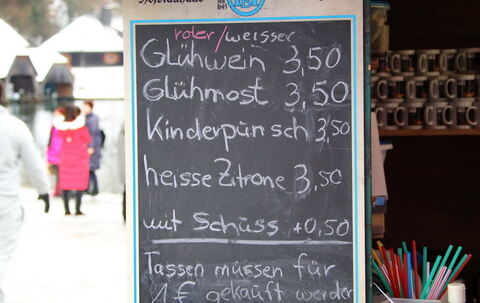 roter/weisser
Glühwein 3,50
Glühmost 3,50
Kinderpunsch 3,50
heisse Zitrone 3,50
mit Schuss +0,50
Tassen müssen für
1€ gekauft werden